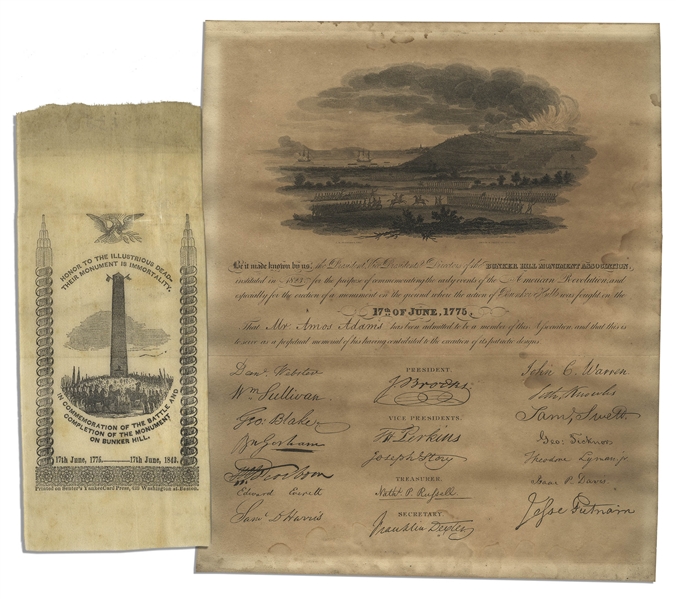 HONOR TO THE ILLUSTRIOUS DEAD—
THEIR MONUMENT IS IMMORTALITY.
IN COMMEMORATION OF THE BATTLE AND
COMPLETION OF THE MONUMENT
ON BUNKER HILL.
17th June, 1775. 17th June, 1843.
Printed on Yankee Card Press, Washington st. Boston
Be it made known by us, the President, Vice President & Directors of the BUNKER HILL MONUMENT ASSOCIATION,
instituted in 1823 for the purpose of commemorating the early events of the American Revolution, and
especially for the erection of a monument on the ground where the action of Bunker Hill was fought, on the
17th OF JUNE, 1775,
That Mr. Amos Adams has been admitted to be a member of this Association, and that this is
to serve as a perpetual memorial of his having contributed to the execution of its patriotic designs.
Danl. Webster
Wm Sullivan
Geo: Blake
B Gorham
Dearborn
Edward Everett
Saml. D Harris
PRESIDENT.
J Brooks
VICE PRESIDENTS.
Perkins
Joseph Story
TREASURER.
Nathl. P. Russell
SECRETARY.
Franklin Dexter
John C. Warren
Knowles
Saml Swett
Geo: Ticknor
Theodore Lyman jr.
Isaac P. Davis
Jesse Putnam